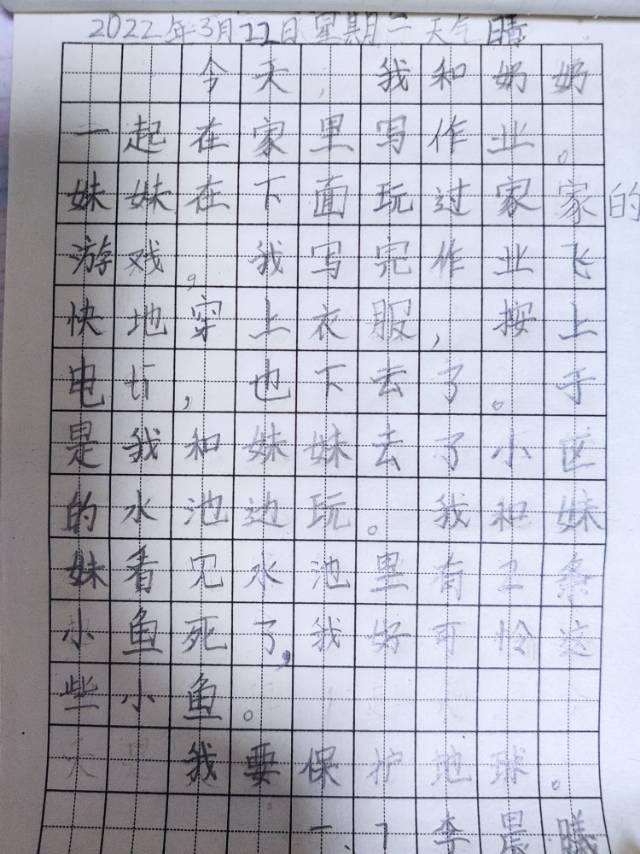 2022年3月22日星期二天气晴
今天,我和奶奶
一起在家里写作业。
妹妹在下面玩过家家的
游戏。我写完作业飞
快地穿上衣服,按上
电,也下去了。于
是我和妹妹去了小区
的水池边玩。我和妹
妹看见水池里有工条
小鱼死了,我好可怜这
些小鱼。
我要保护地球。
李晨曦